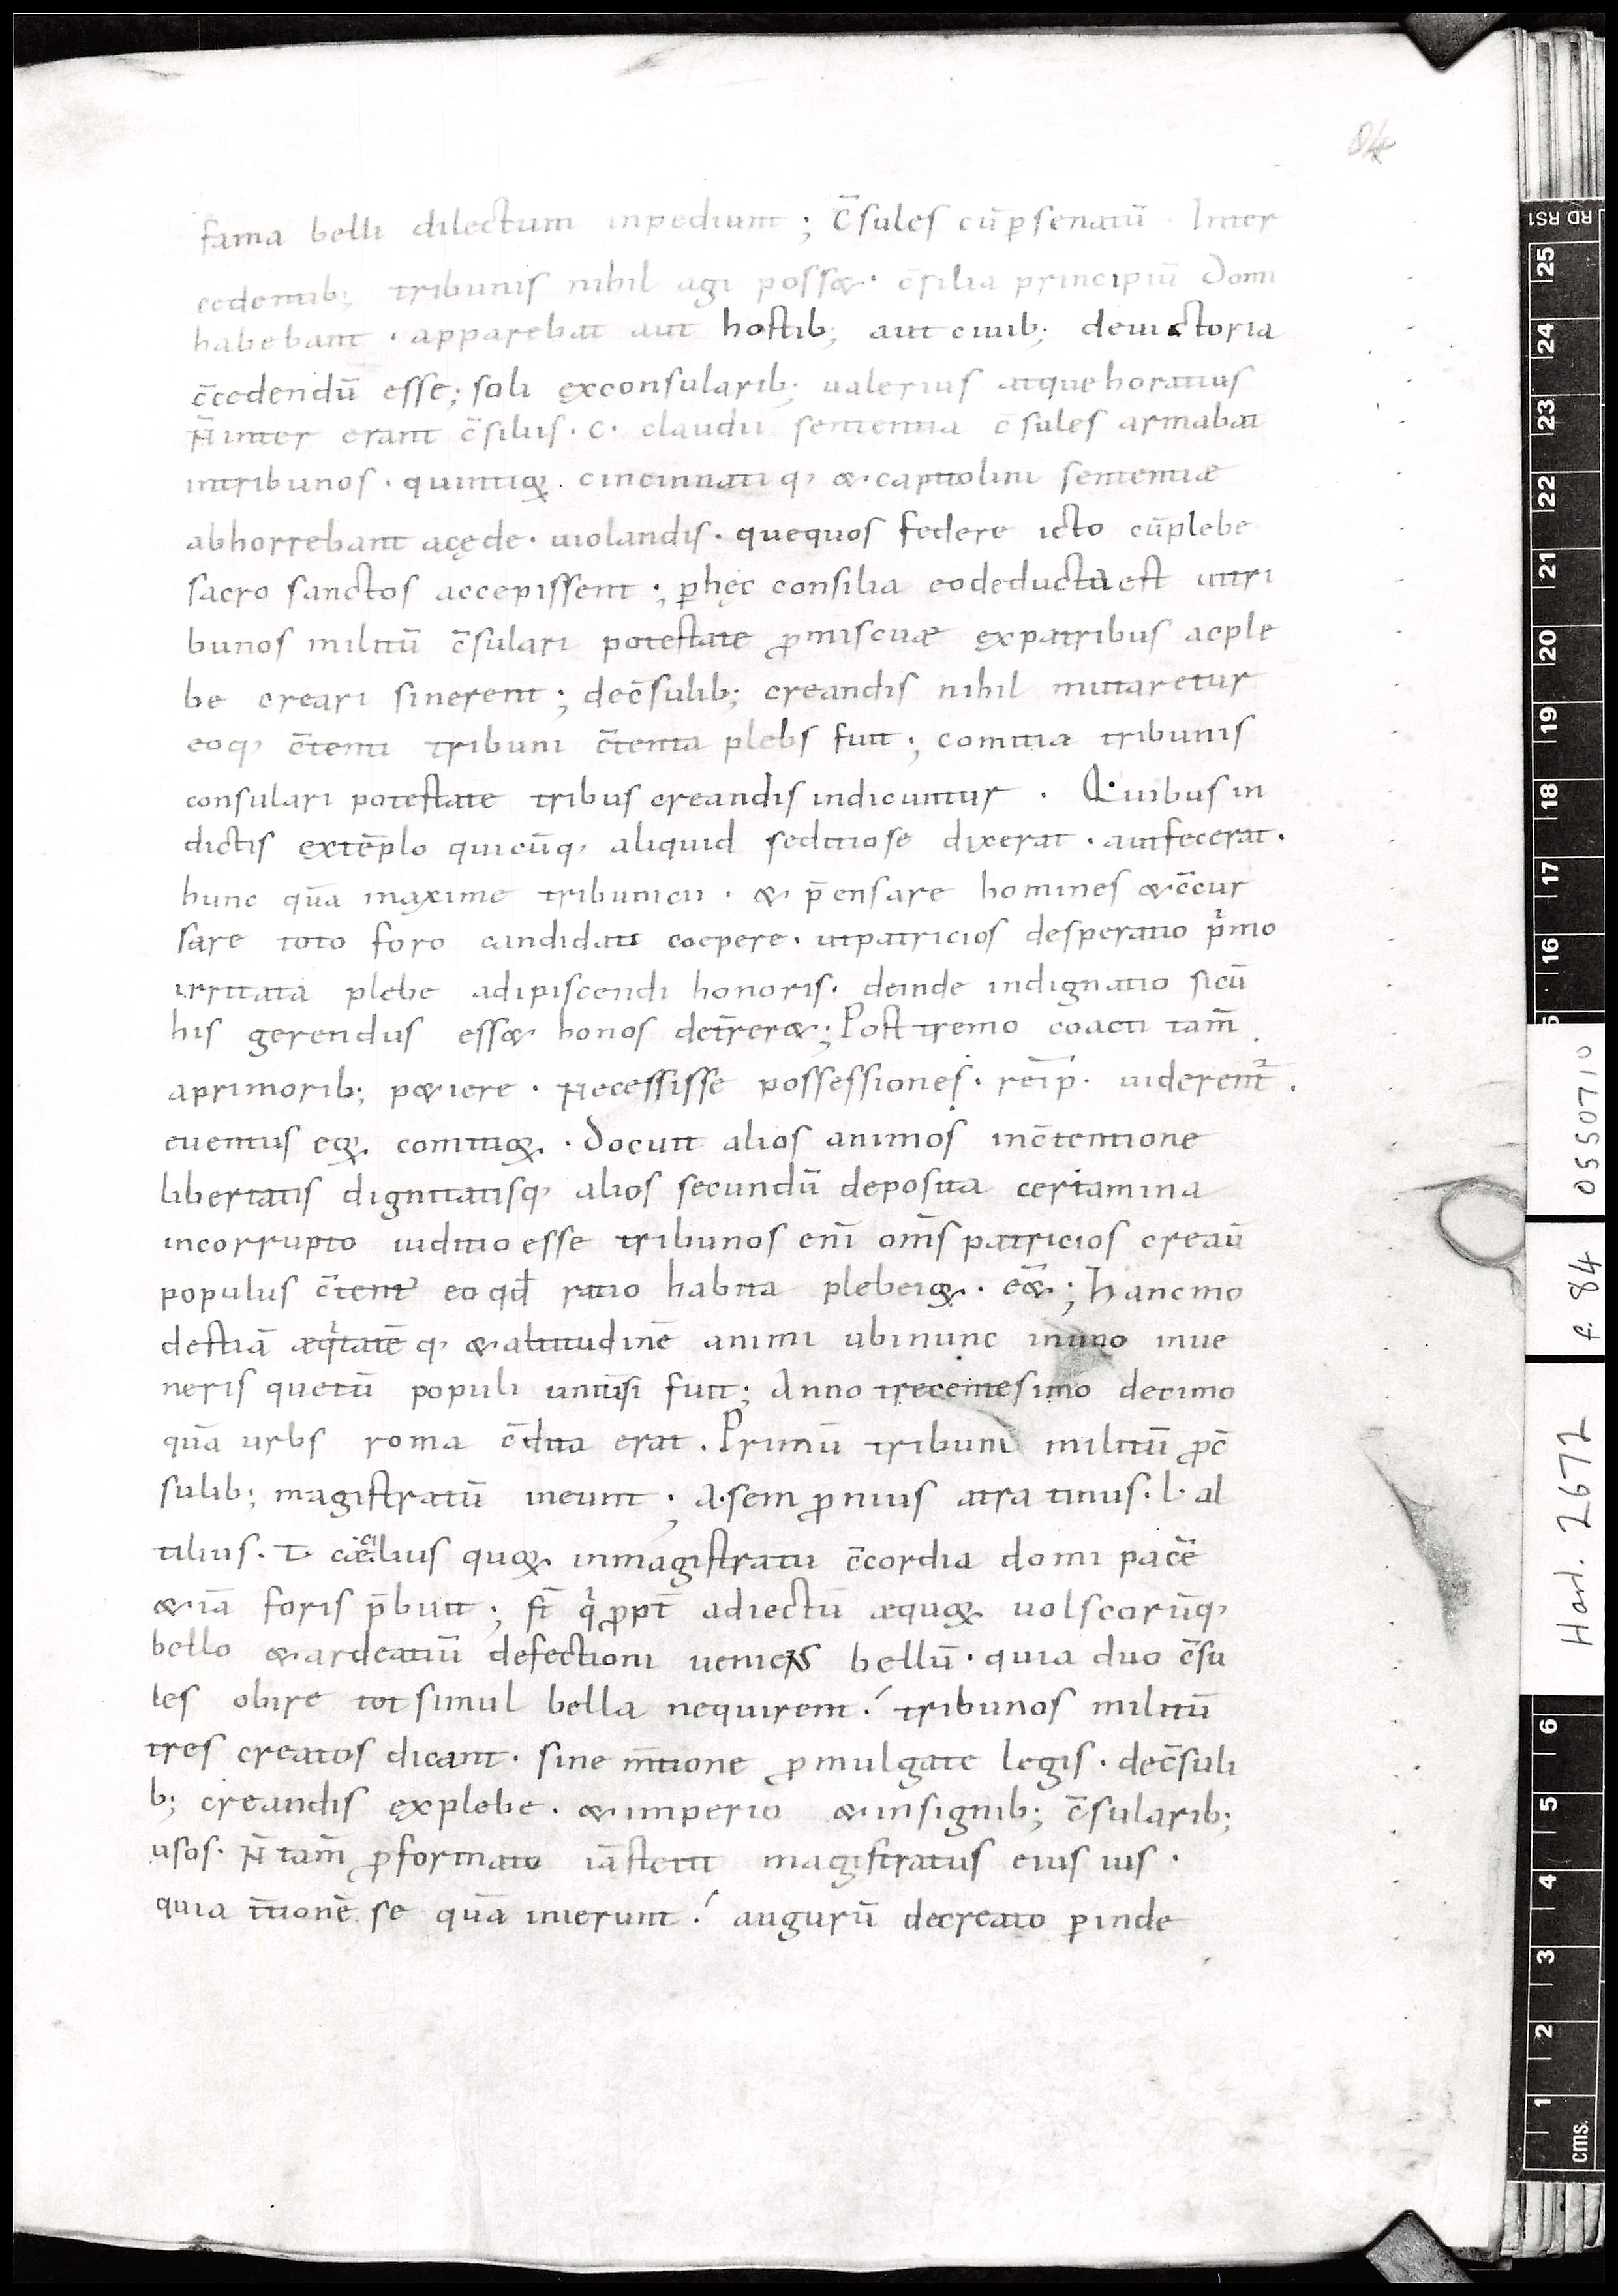 84
fama belli dilectum inpediunt ; c̄sules cū p̱ senatū · Inter
cedentib; tribunis nihil agi poss& · c̄silia principiū domi
habebant · apparebat aut hostib; aut ciuib; deuictoria
c̄cedendū esse ; soli ęxconsularib; ualerius atque horatius
n̄ inter erant c̄siliis · c · claudii sententia c̄sules armabat
intribunos · quintioꝝ cincinnatiq, & capitolini sententiæ
abhorrebant acęde · uiolandis · quequos federe icto cū plebe
sacro sanctos accepissent ; ꝑ hęc consilia eodeductū est uttri
bunos militū c̄sulari potestate ꝓmiscuæ ęxpatribus acple
be creari sinerent ; dec̄sulib; creandis nihil mutaretur
eoq, c̄tenti tribuni c̄tenta plebs fuit ; comitia tribunis
consulari potestate tribus creandis indicuntur · Quibus in
dictis extēplo quicūq, aliquid seditiose dixerat · autfecerat ·
hunc quā maxime tribunicii · & p̄ensare homines & c̄cur
sare toto foro candidati coepere · utpatricios desperatio pͥmo
irritata plebe adipiscendi honoris · deinde indignatio sicū
his gerendus ess& honos det̄rer& ; Posttremo coacti tam̄
aprimorib; p&iere · necessisse possessiones · reip̄ · uiderent᷑ ·
euentus eoꝝ comitioꝝ · docuit alios animos inc̄tentione
libertatis dignitatisq, alios secundū deposita certamina
incorrupto iuditio esse tribunos eni̅ om̄s patricios creauī
populus c̄tent᷒ eo qđ ratio habita plebeioꝝ · e&̄ ; hanc mo
destiā æqͥtatē q, & altitudinē animi ubinunc inuno inue
neris quetū populi uniūsi fuit ; Anno trecentesimo decimo
quā urbs roma c̄dita erat · Primū tribuni militū ꝓc̄
sulib; magistratū ineunt ; A · sem ꝓnius atra tinus · l · al
tilius · T · cæcilius quoꝝ inmagistratu c̄cordia domi pacē
& iā foris p̄buit ; s̄t qͥ ꝓpt̄ adiectū æquoꝝ uolscorūq,
bello & ardeatiū defectioni ueniens bellū · quia duo c̄su
les obire tot simul bella nequirent ? tribunos militū
tres creatos dicant · sine m̄tione ꝓmulgate legis · dec̄suli
b; creandis ęxplebe · & imperio & insignib; c̄sularib;
usos · n̄ tam̄ ꝓformato iā stetit magistratus eius ius ·
quia t̄tionē se quā inierunt ? augurū decreato ꝑinde
RD RS1
25
24
23
22
21
20
19
18
17
16
0550710
f. 84
Harl. 2672
6
5
4
3
2
1
cms.